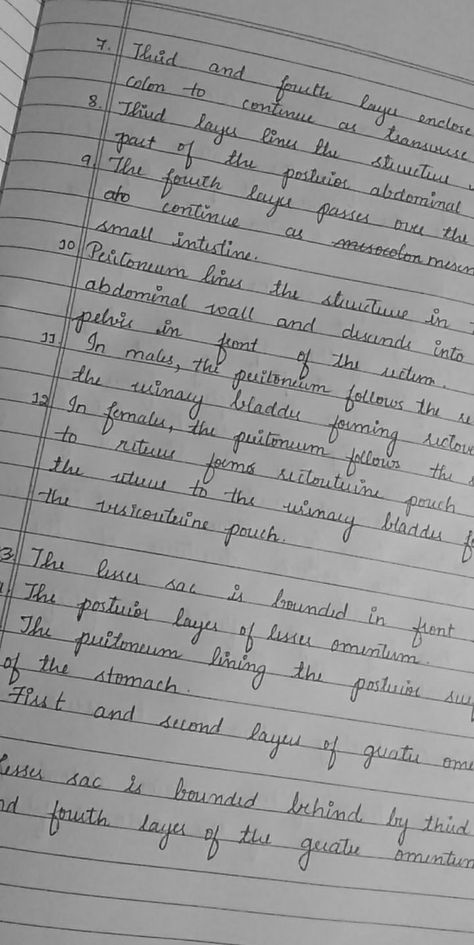 7. Third and fourth layer enclose
colon to continue as transverse
8. Third layer lines the structure
part of the posterior abdominal
9. The fourth layer passes over the
continue as mesocolon mesen
small intestine.
10 Peritoneum lines the structure in
abdominal wall and discends into
pelvis in front of the rectum.
11. In males, the peritoneum follows the re
the urinary bladder forming rectove
12. In females, the peritoneum follows the
to forms rectouterine pouch
the uterus to the urinary bladder fo
the vesicouterine pouch.
3. The lesser sac is bounded in front
The posterior layer of lesser omentum.
The peritoneum lining the posterior sur
of the stomach.
First and second layer of greater ome
lesser sac is bounded behind by third
nd fourth layer of the greater omentum